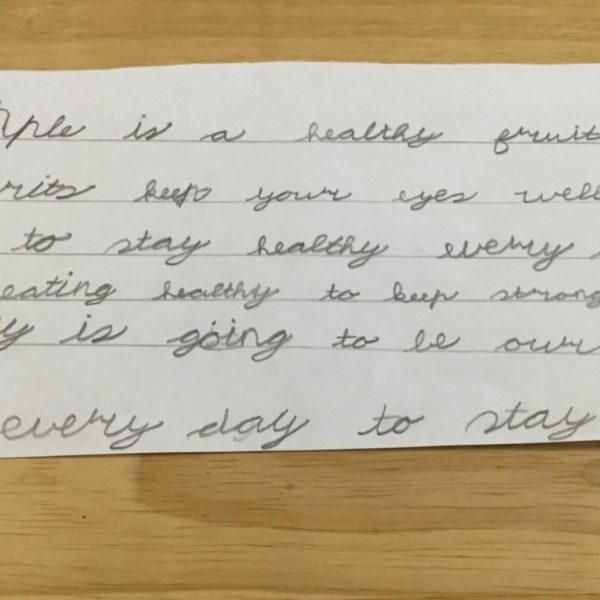 is a healthy fruit
keep your eyes well
to stay healthy every
eating healthy to keep strong
is going to be our
every day to stay